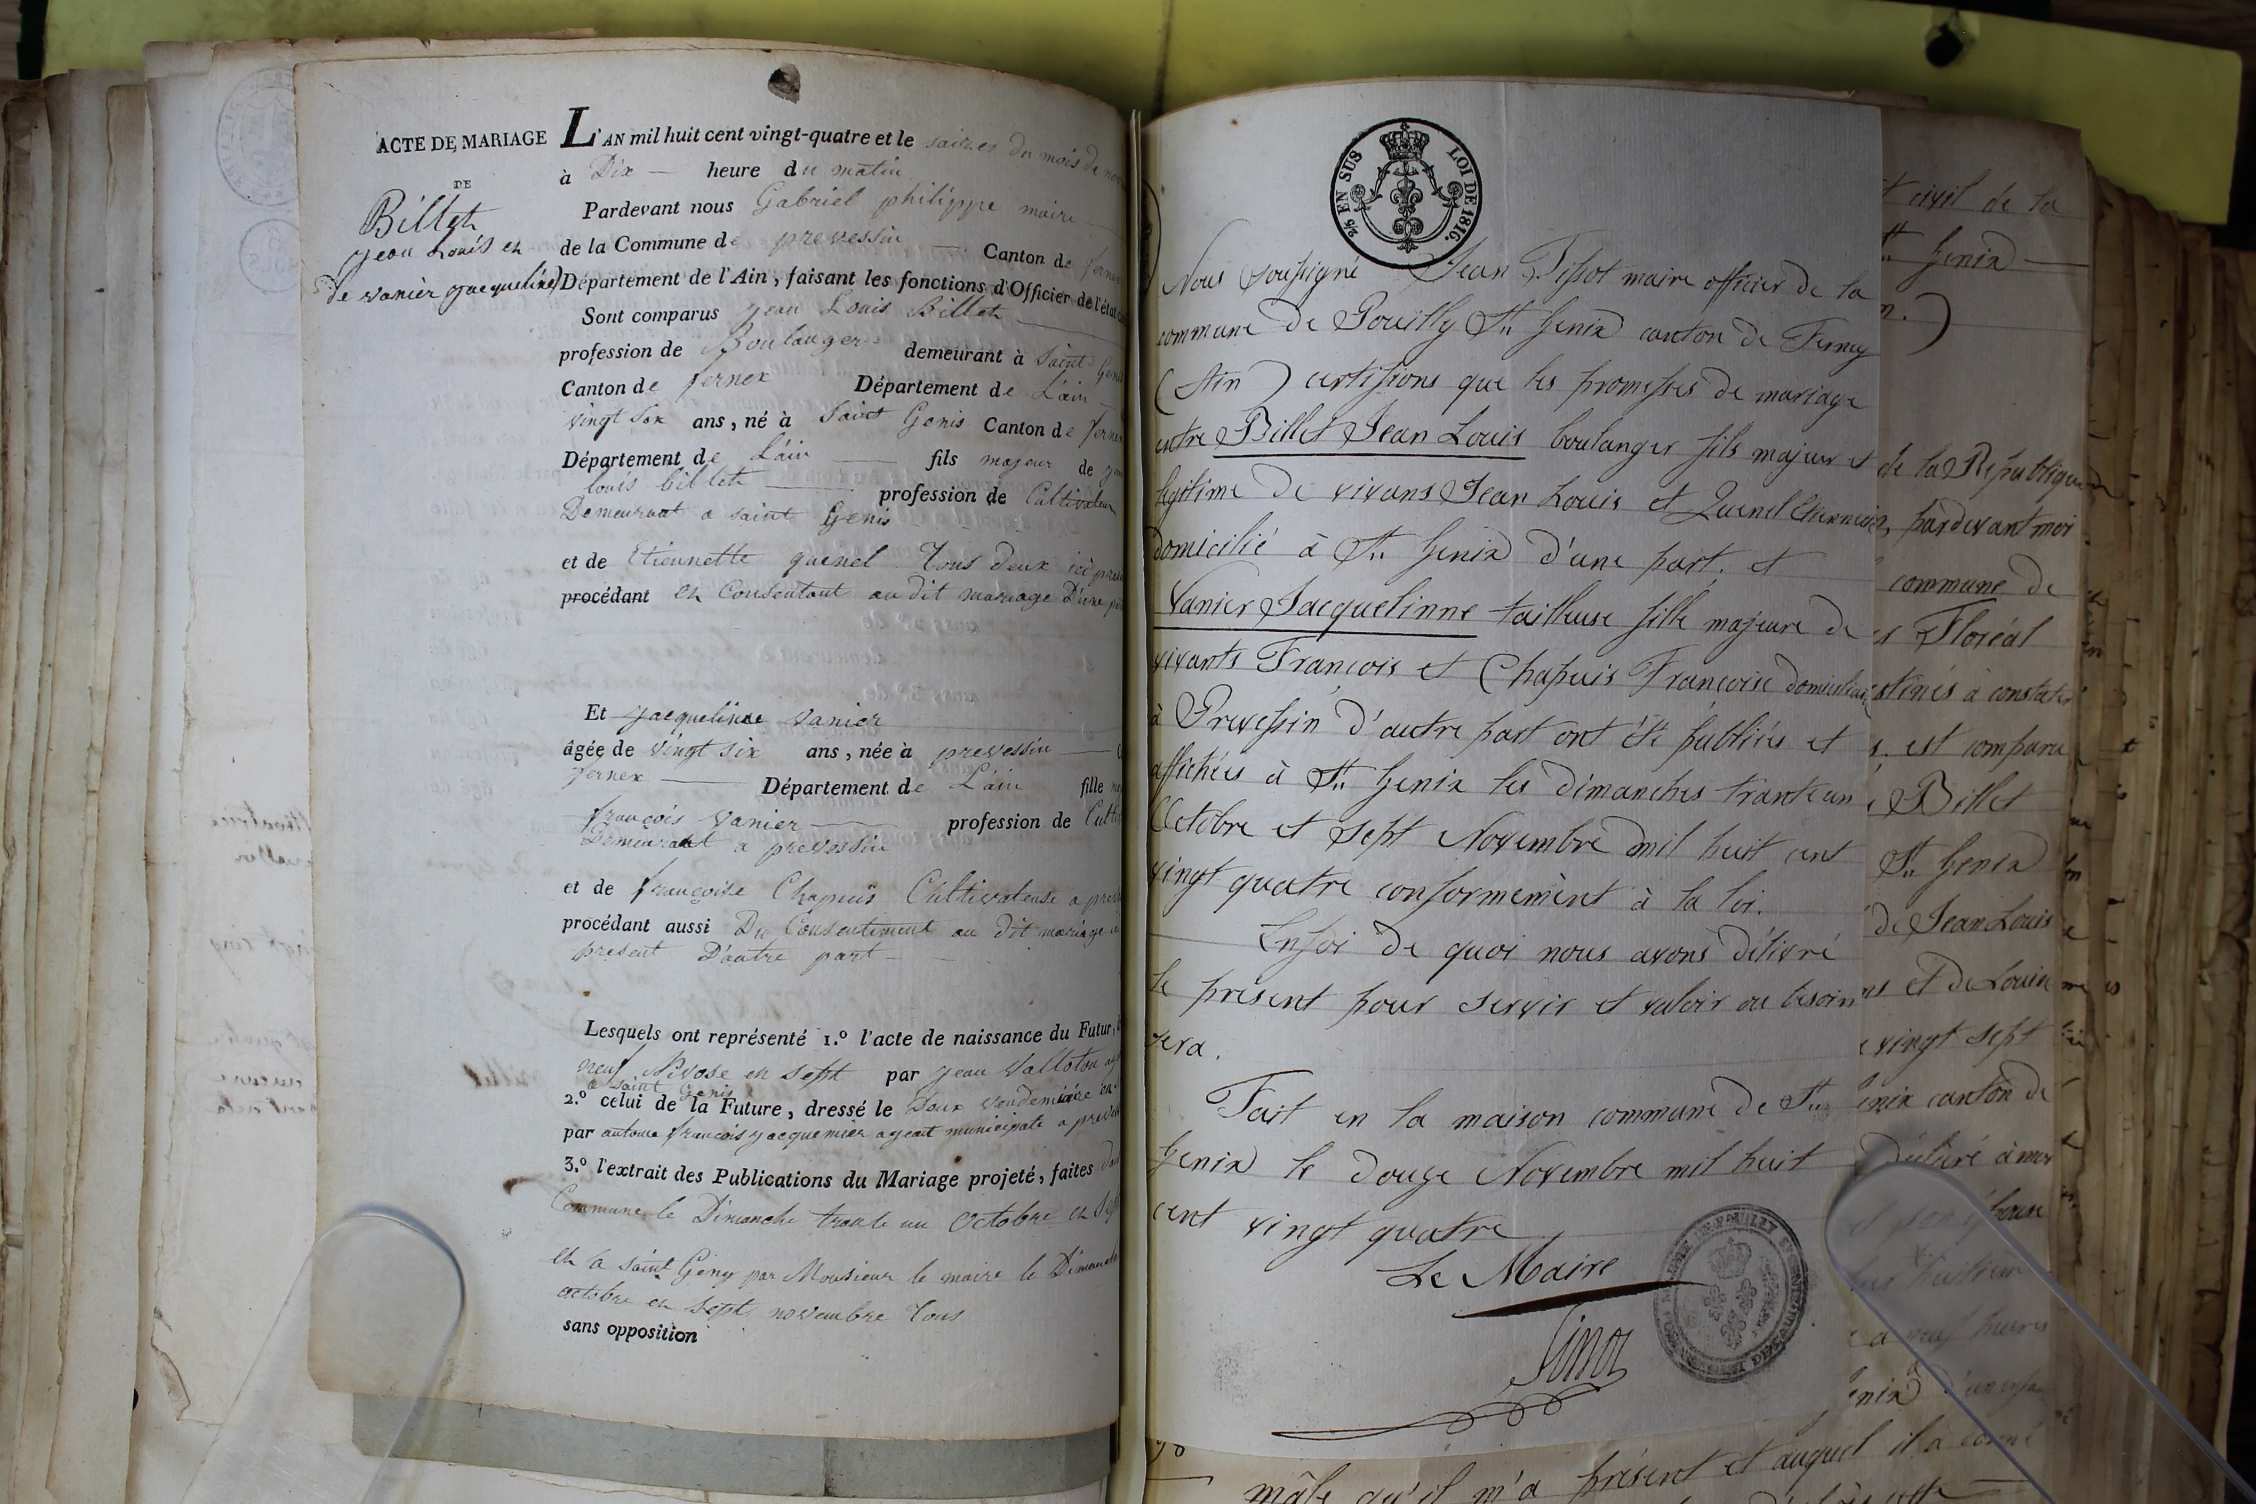 ACTE DE MARIAGE
DE
Billet
jean Louis et
de vanier jacqueline
L'AN mil huit cent vingt-quatre et le saizes du mois de
à Dix heure du matin
Pardevant nous Gabriel philippe maire
de la Commune de prevessin Canton de ferney
Département de l'Ain, faisant les fonctions d'Officier de l'état
Sont comparus jean Louis Billet
profession de Boulanger demeurant à Saint Genis
Canton de fernex Département de L'ain
vingt six ans, né à Saint Genis Canton de fernex
Département de L'ain fils majeur de
louis billet profession de Cultivateur
Demeurant a saint Genis
et de Etiennette quenel Tous deux ici
procédant et Consentant au dit mariage D'une
Et jacqueline vanier
âgée de vingt six ans, née à prevessin
fernex Département de L'ain fille
françois vanier profession de
Demeurant a prevessin
et de françoise Chapuis Cultivateuse a
procédant aussi Du Consentiment au dit mariage
present D'autre part
Lesquels ont représenté 1.º l'acte de naissance du Futur,
neuf Nivose en sept par jean Valloton
a saint Genis
2.º celui de la Future, dressé le Doux vendemiaire
par antoine françois jacquemier agent municipale a
3.º l'extrait des Publications du Mariage projeté, faites
Commune le Dimanche trante un Octobre et
et a saint Geny par Monsieur le maire le Dimanche
octobre et sept novembre Tous
sans opposition
2/5 EN SUS LOI DE 1816.
Nous soussigné Jean Tissot maire officier de la
commune de Pouilly St Genix canton de Ferney
(Ain) certifions que les promesses de mariage
entre Billet Jean Louis boulanger fils majeur et
légitime de vivans Jean Louis et Quenel
domicilié à St Genix d'une part. et
Vanier Jacquelinne tailleuse fille majeure de
vivants François et Chapuis Françoise
à Prevessin d'autre part ont été publiées et
affichées à St Genix les dimanches trante un
Octobre et sept Novembre mil huit cent
vingt quatre conformement à la loi.
Enfoi de quoi nous avons délivré
le présent pour servir et valoir ou besoin
sera.
Fait en la maison commune de St
Genix le douze Novembre mil huit
cent vingt quatre
Le Maire
civil de la
St Genix
n.)
de la République
pardevant moi
commune de
Floréal
destinés à constater
est comparu
Billet
St Genix
de Jean Louis
et de Louise
vingt sept
Genix canton de
Déclaré à moi
neuf heures
mâle qu'il m'a présent et auquel il a donné